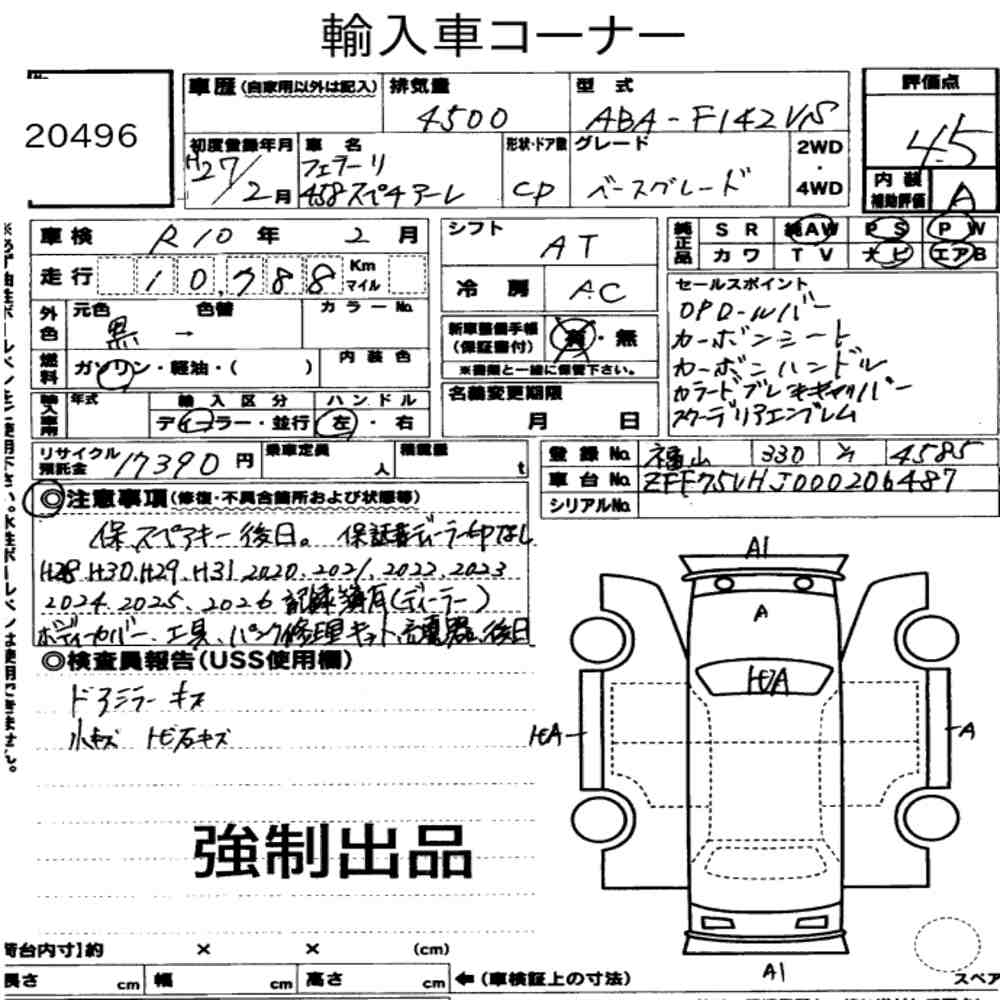 輸入車コーナー
20496
車歴(自家用以外は記入)
排気量
4500
型式
ABA-F142VS
評価点
4.5
初度登録年月
H27/2月
車名
フェラーリ
458スペチアーレ
形状・ドア数
CP
グレード
ベースグレード
2WD
・
4WD
内装
補助評価
A
車検 R10年 2月
走行 10,788 Km マイル
シフト AT
冷房 AC
純正品
SR 純AW PS PW
カワ TV ナビ エアB
外色
元色 黒 →
色替
カラーNo.
燃料
ガソリン・軽油・( )
内装色
新車整備手帳
(保証書付)
有・無
※書類と一緒に保管下さい。
セールスポイント
OPロールバー
カーボンシート
カーボンハンドル
カラードブレーキキャリパー
スクーデリアエンブレム
輸入車用
年式
輸入区分
ディーラー・並行
ハンドル
左・右
名義変更期限
月 日
リサイクル
預託金 17390円
乗車定員 人
積載量 t
登録No. 福山 330 4585
車台No. ZFF75VHJ000206487
シリアルNo.
◎注意事項(修復・不具合箇所および状態等)
保 スペアキー後日。 保証書ディーラー印なし
H28.H30.H29.H31.2020.2021.2022.2023
2024.2025.2026 記録簿有(ディーラー)
ボディーカバー、工具、パンク修理キット、充電器、後日
◎検査員報告(USS使用欄)
ドアミラーキズ
小キズ 飛石キズ
強制出品
A1
A
トビA
トビA
A
A1
荷台内寸】約 × × (cm)
長さ cm 幅 cm 高さ cm ←(車検証上の寸法)
スペア
※必ず油性ボールペンをご使用下さい。水性ボールペンは使用できません。